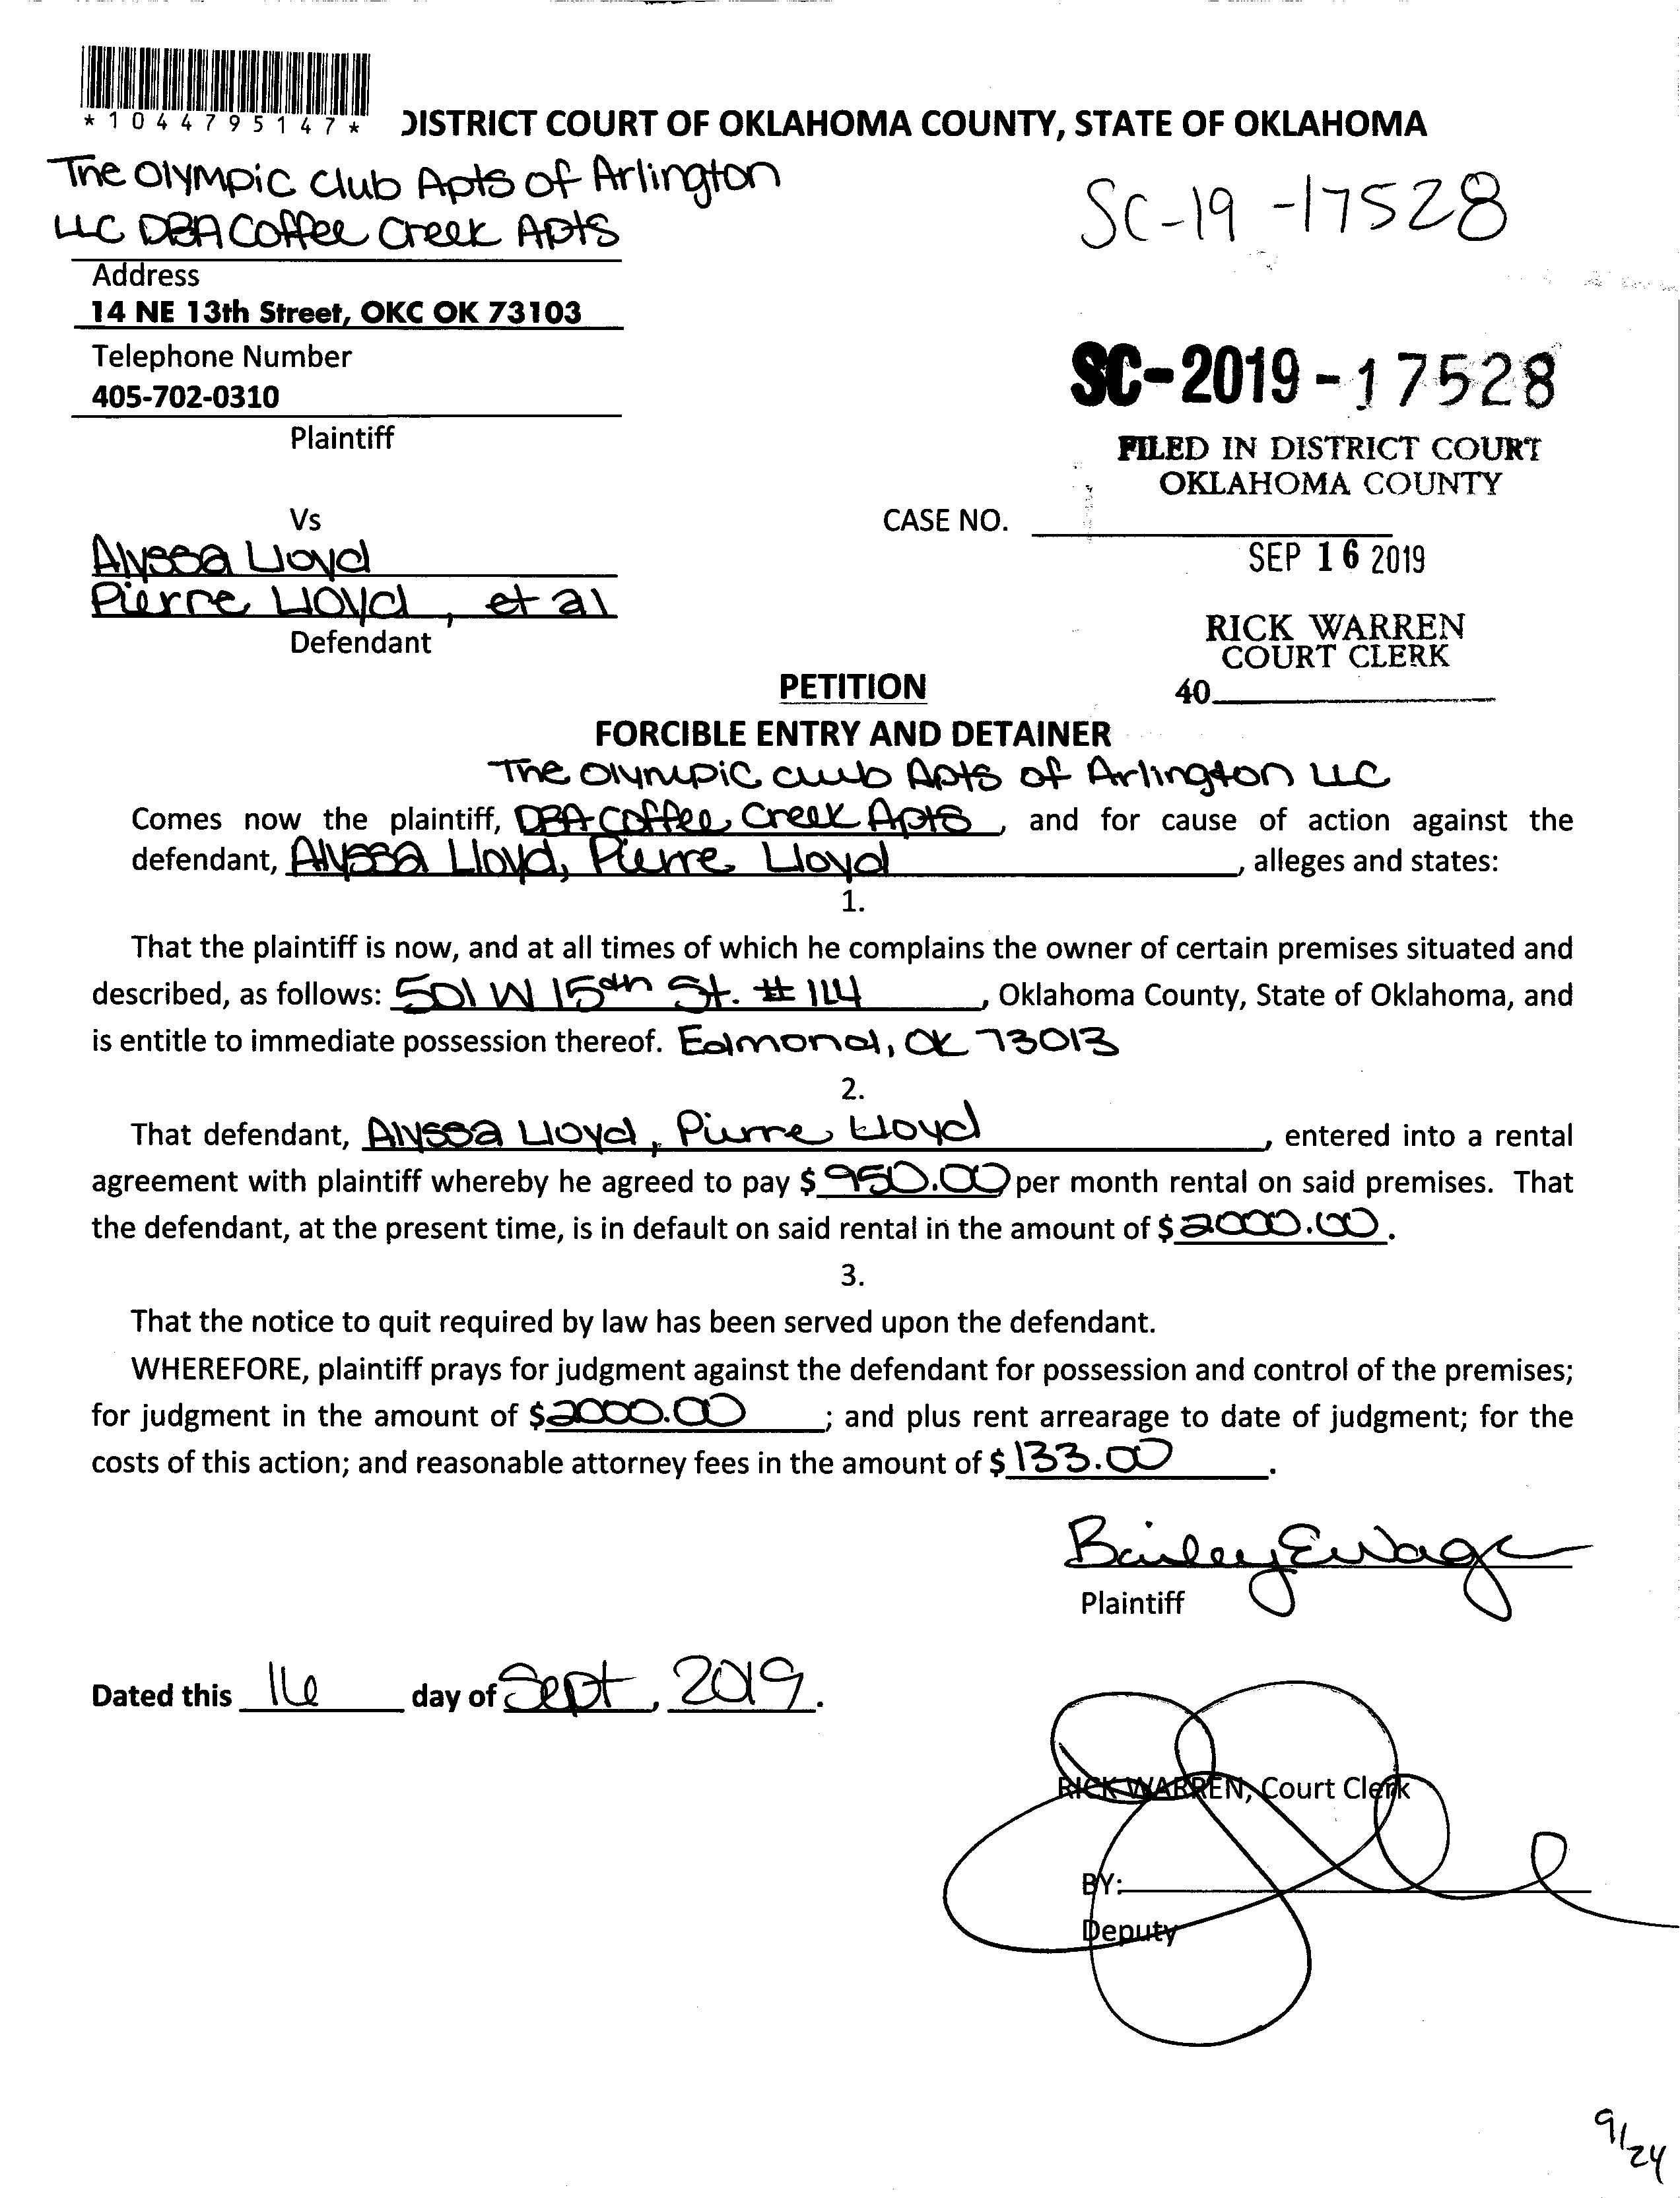 *1044795147*
DISTRICT COURT OF OKLAHOMA COUNTY, STATE OF OKLAHOMA
The Olympic Club Apts of Arlington
LLC DBA Coffee Creek Apts
SC-19-17528
Address
14 NE 13th Street, OKC OK 73103
Telephone Number
405-702-0310
Plaintiff
SC-2019-17528
FILED IN DISTRICT COURT
OKLAHOMA COUNTY
Vs
CASE NO.
Alyssa Lloyd
SEP 16 2019
Pierre Lloyd, et al
Defendant
RICK WARREN
COURT CLERK
40
PETITION
FORCIBLE ENTRY AND DETAINER
The Olympic Club Apts of Arlington LLC
Comes now the plaintiff, DBA Coffee Creek Apts, and for cause of action against the
defendant, Alyssa Lloyd, Pierre Lloyd, alleges and states:
1.
That the plaintiff is now, and at all times of which he complains the owner of certain premises situated and
described, as follows: 501 W 15th St. #114, Oklahoma County, State of Oklahoma, and
is entitle to immediate possession thereof. Edmond, OK 73013
2.
That defendant, Alyssa Lloyd, Pierre Lloyd, entered into a rental
agreement with plaintiff whereby he agreed to pay $ 950.00 per month rental on said premises. That
the defendant, at the present time, is in default on said rental in the amount of $ 2000.00.
3.
That the notice to quit required by law has been served upon the defendant.
WHEREFORE, plaintiff prays for judgment against the defendant for possession and control of the premises;
for judgment in the amount of $2000.00; and plus rent arrearage to date of judgment; for the
costs of this action; and reasonable attorney fees in the amount of $ 133.00.
Plaintiff
Dated this 16 day of Sept, 2019.
RICK WARREN, Court Clerk
BY:
Deputy
9/24